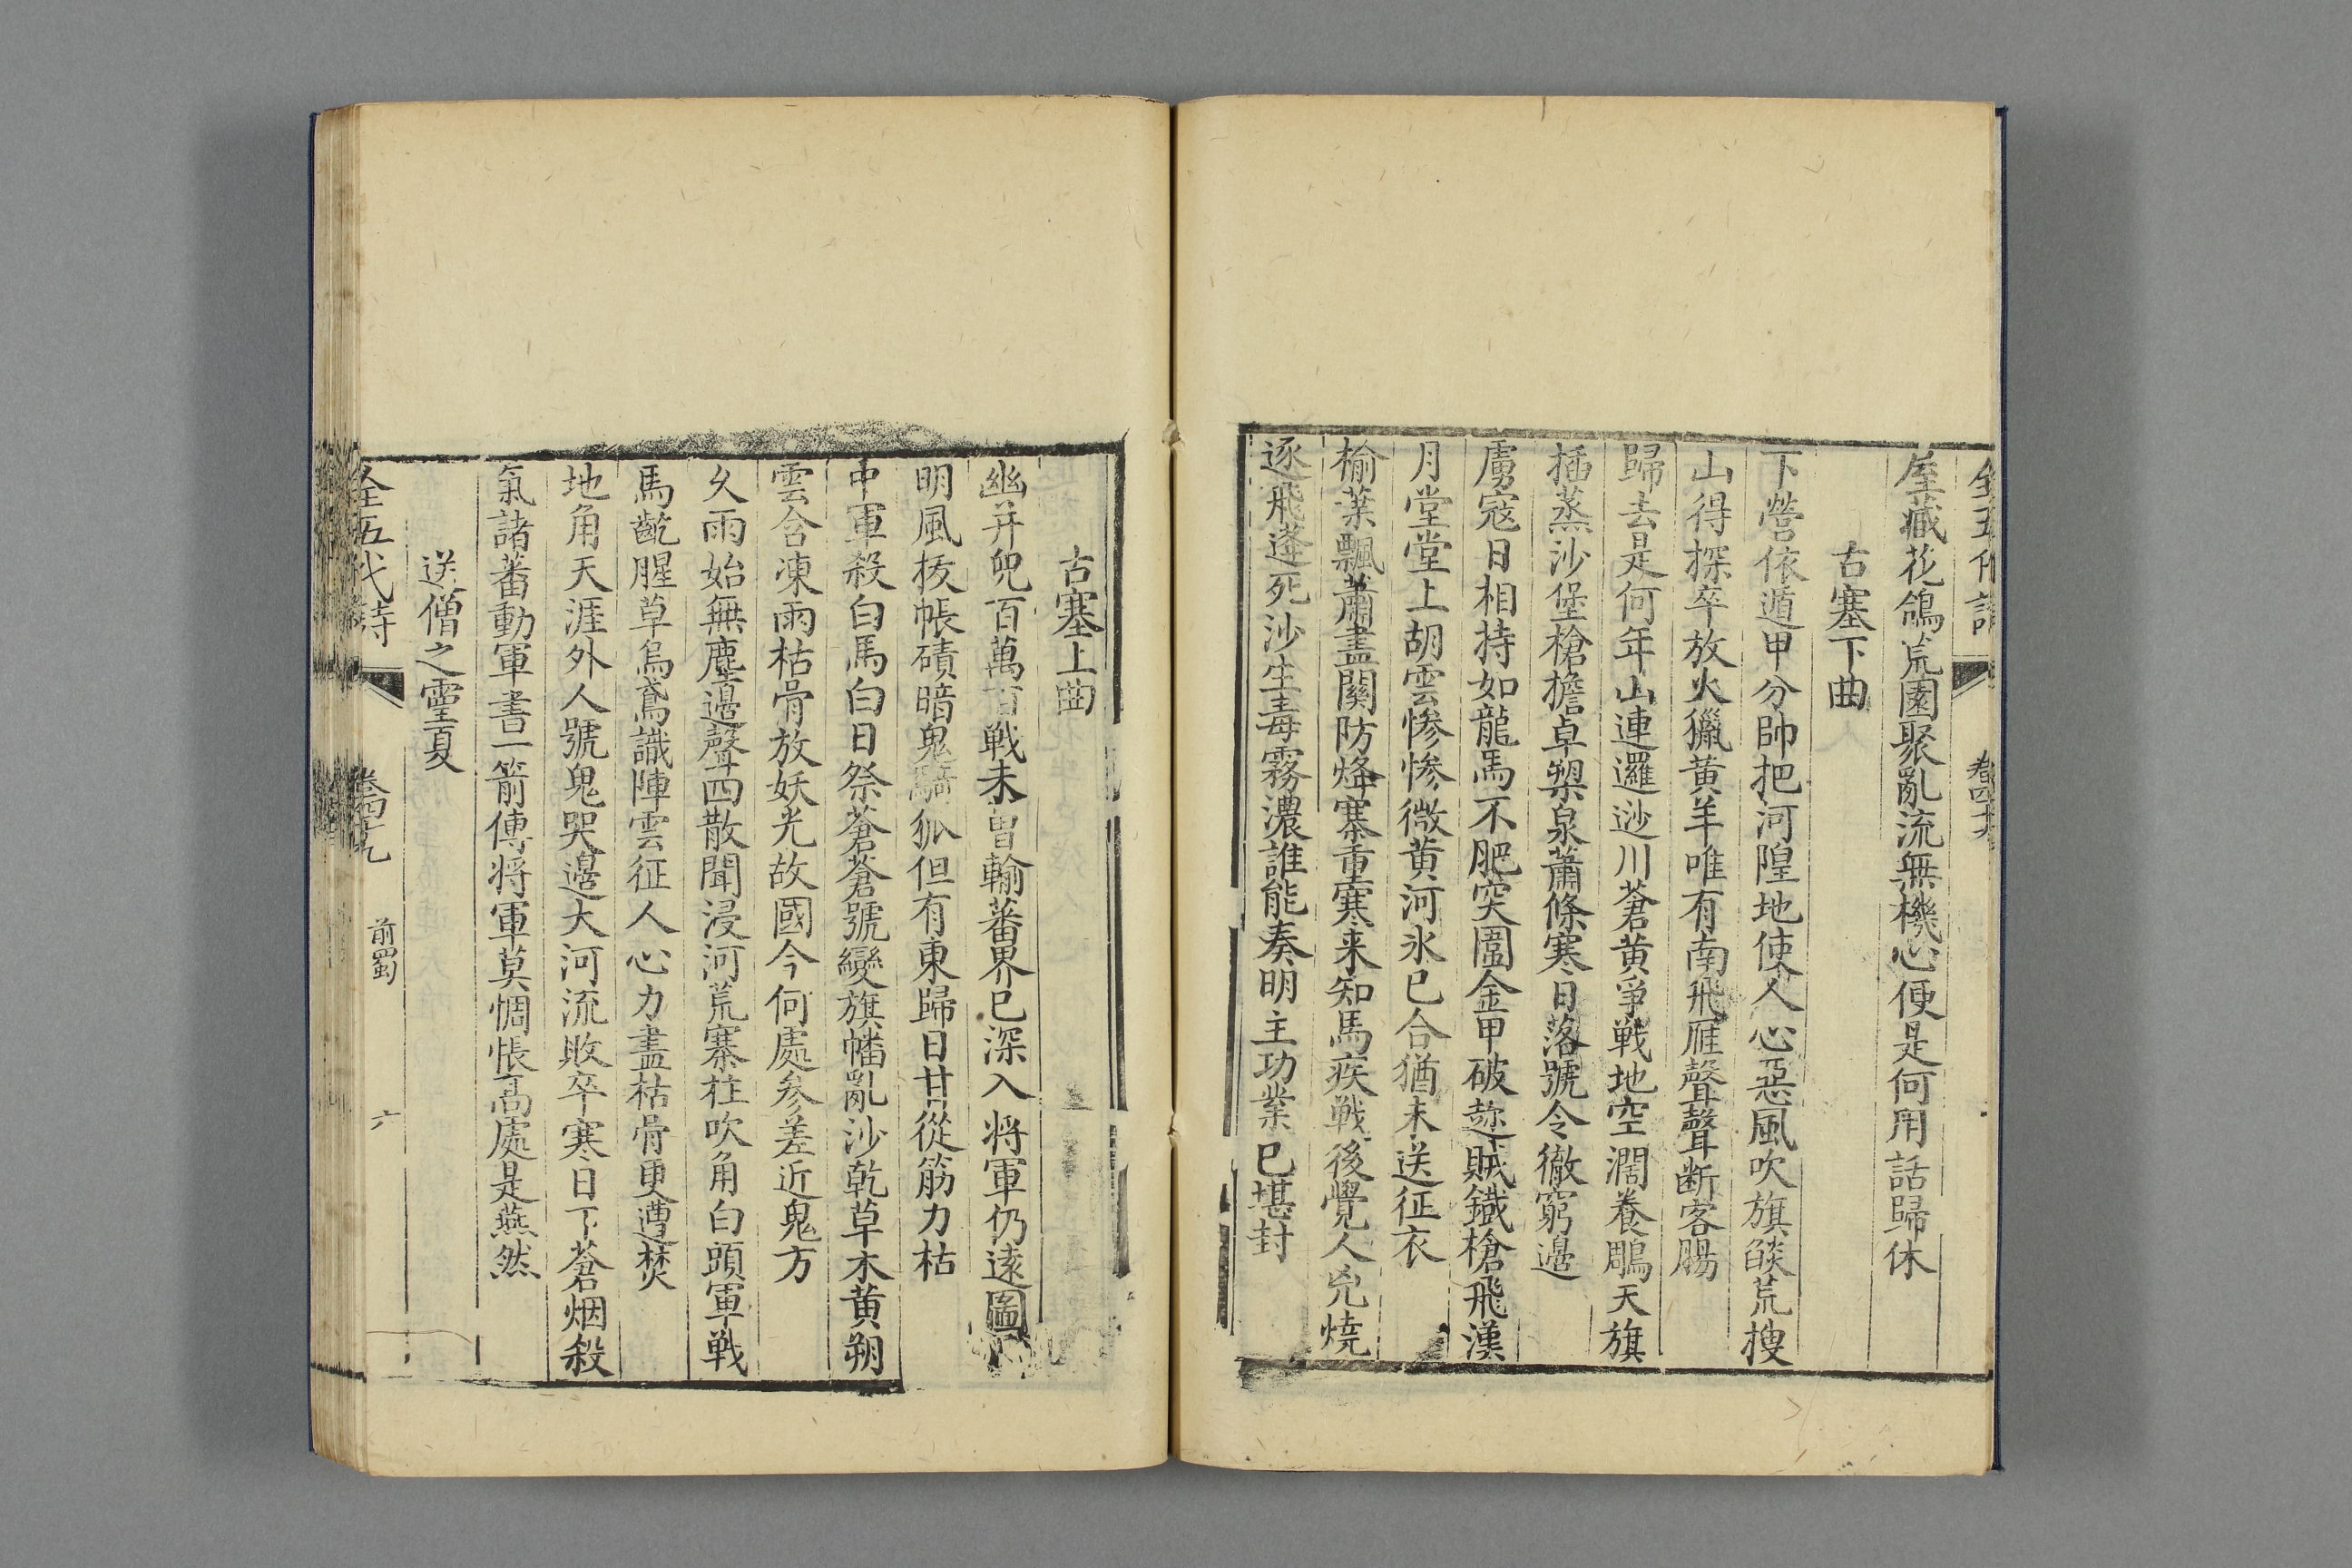 全五代詩 卷四十九
屋藏花鴿荒園聚亂流無機心便是何用話歸休
古塞下曲
下營依遁甲分帥把河隍地使人心惡風吹旗焰荒搜
山得探卒放火獵黄羊唯有南飛雁聲聲断客腸
歸去是何年山連邏逤川蒼黄爭戰地空濶養鵰天旗
插蒸沙堡槍擔卓槊泉蕭條寒日落號令徹窮邊
虜寇日相持如龍馬不肥突圍金甲破趂賊鐵槍飛漢
月堂堂上胡雲惨惨微黄河氷已合猶未送征衣
榆葉飄蕭盡關防烽寨重寒来知馬疾戰後覺人兇燒
逐飛蓬死沙生毒霧濃誰能奏明主功業已堪封
古塞上曲
幽并兕百萬百戰未曾輸蕃界已深入将軍仍遠圖
明風拔帳磧暗鬼騎狐但有東歸日甘從筋力枯
中軍殺白馬白日祭蒼蒼號變旗幡亂沙乾草木黄朔
雲含凍雨枯骨放妖光故國今何處參差近鬼方
乆雨始無塵邊聲四散聞浸河荒寨柱吹角白頭軍戰
馬齕腥草烏鳶識陣雲征人心力盡枯骨更遭焚
地角天涯外人號鬼哭邊大河流敗卒寒日下蒼烟殺
氣諸蕃動軍書一箭傳将軍莫惆悵高處是燕然
送僧之靈夏
全五代詩 卷四十九 前蜀 六